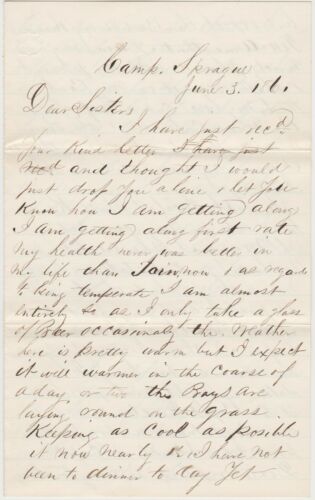 Camp. Sprague
June 3. 186.
Dear Sisters
I have just recd.
your kind letter I have just
recd and thought I would
just drop you a line & let you
Know how I am getting along
I am getting along first rate
my health never was better in
my life than I am now & as regards
to being temperate I am almost
entirely so as I only take a glass
of Beer occasionaly the Weather
here is pretty warm but I expect
it will warmer in the coarse of
a day or two the Boys are
laying round on the grass
Keeping as Cool as posible
it now nearly & I have not
been to dinner to day yet